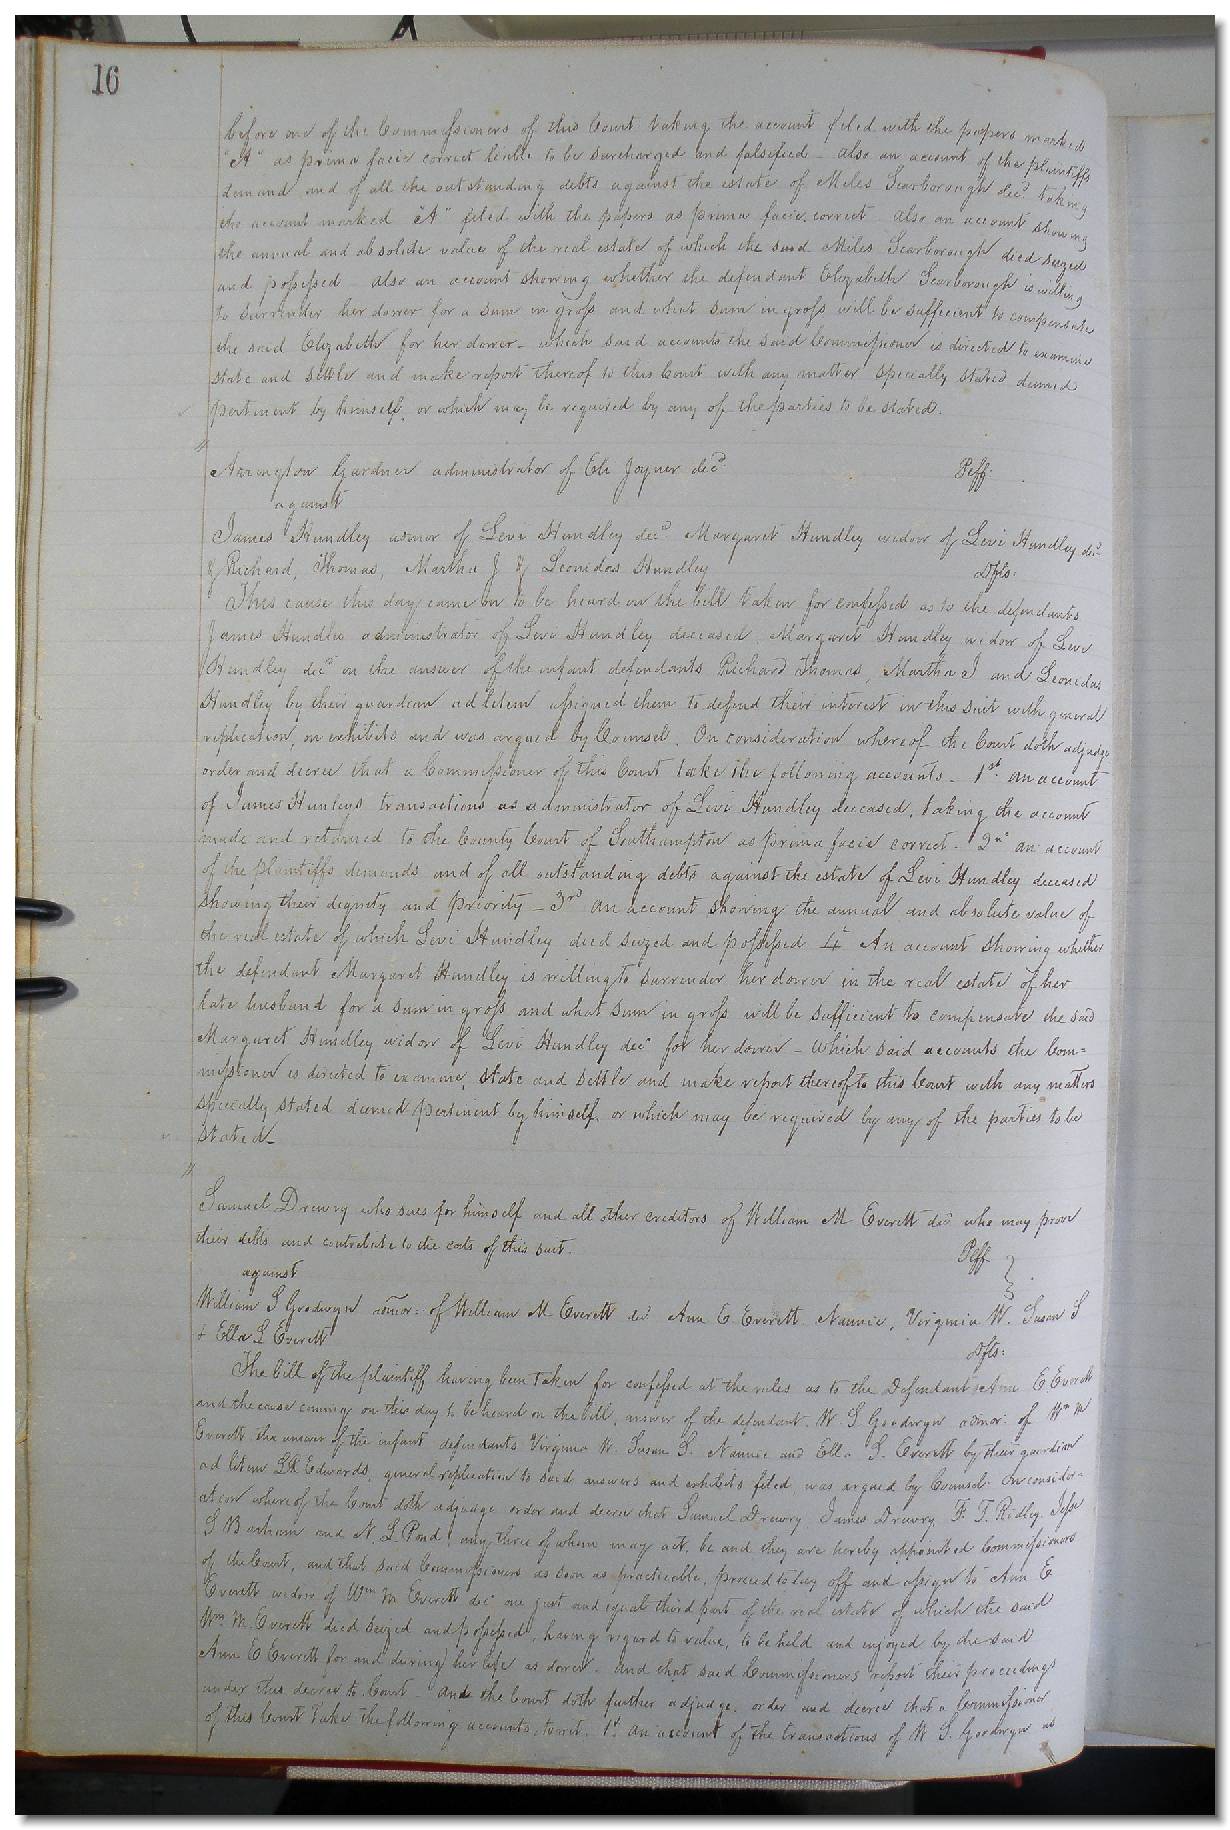 16
before one of the Commissioners of this Court taking the account filed with the papers marked
"A" as prima facie correct liable to be surcharged and falsified – also an account of the plaintiffs
demand and of all the outstanding debts against the estate of Miles Scarborough decd. taking
the account marked "A" filed with the papers as prima facie correct also an account showing
the annual and absolute value of the real estate of which the said Miles Scarborough died seized
and possessed – also an account showing whether the defendant Elizabeth Scarborough is willing
to surrender her dower for a sum in gross and what sum in gross will be sufficient to compensate
the said Elizabeth for her dower – which said accounts the said Commissioner is directed to examine
state and settle and make report thereof to this Court with any matter specially stated deemed
pertinent by himself, or which may be required by any of the parties to be stated.
Arrington Gardner administrator of Eli Joyner decd Plff.
against
James Hundley admor of Levi Hundley decd Margaret Hundley widow of Levi Hundley decd
& Richard, Thomas, Martha J & Leonidas Hundley Dfts.
This cause this day came on to be heard on the bill taken for confessed as to the defendants
James Hundley administrator of Levi Hundley deceased, Margaret Hundley widow of Levi
Hundley decd on the answer of the infant defendants Richard Thomas, Martha J and Leonidas
Hundley by their guardian ad litem assigned them to defend their interest in this suit with general
replication, on exhibits and was argued by Counsel. On consideration whereof the Court doth adjudge
order and decree that a Commissioner of this Court take the following accounts – 1st. an account
of James Hunleys transactions as administrator of Levi Hundley deceased, taking the account
made and returned to the County Court of Southampton as prima facie correct – 2nd an account
of the plaintiffs demands and of all outstanding debts against the estate of Levi Hundley deceased
showing their dignity and priority – 3rd an account showing the annual and absolute value of
the real estate of which Levi Hundley died seized and possessed 4 An account showing whether
the defendant Margaret Hundley is willing to surrender her dower in the real estate of her
late husband for a sum in gross and what sum in gross will be sufficient to compensate the said
Margaret Hundley widow of Levi Hundley decd for her dower – which said accounts the Com=
missioner is directed to examine, state and settle and make report thereof to this Court with any matters
specially stated deemed pertinent by himself, or which may be required by any of the parties to be
stated –
Samuel Drewry who sues for himself and all other creditors of William M Everett decd who may prove
their debts and contribute to the costs of this suit. Plff.
against
William S Goodwyn admor: of William M Everett decd Ann E Everett Nannie, Virginia W. Susan S
& Ella S Everett Dfts:
The bill of the plaintiff having been taken for confessed at the rules as to the Defendant Ann E. Everett
and the cause coming on this day to be heard on the bill, answer of the defendant W. S Goodwyn admor: of Wm M
Everett the answer of the infant defendants Virginia W. Susan S. Nannie and Ella S. Everett by their guardian
ad litem Edwards, general replication to said answers and exhibits filed, was argued by Counsel. On consider-
ation whereof the Court doth adjudge order and decree that Samuel Drewry James Drewry F. T. Ridley Jesse
S Barham and N. S. Pond, any three of whom may act, be and they are hereby appointed Commissioners
of the Court, and that said Commissioners as soon as practicable, proceed to lay off and assign to Ann E
Everett widow of Wm M Everett decd one just and equal third part of the real estate of which the said
Wm. M. Everett died seized and possessed, having regard to value, to be held and enjoyed by the said
Ann E Everett for and during her life as dower – and that said Commissioners report their proceedings
under this decree to Court – And the Court doth further adjudge, order and decree that a Commissioner
of this Court take the following accounts, towit. 1st. An account of the transactions of W S. Goodwyn as